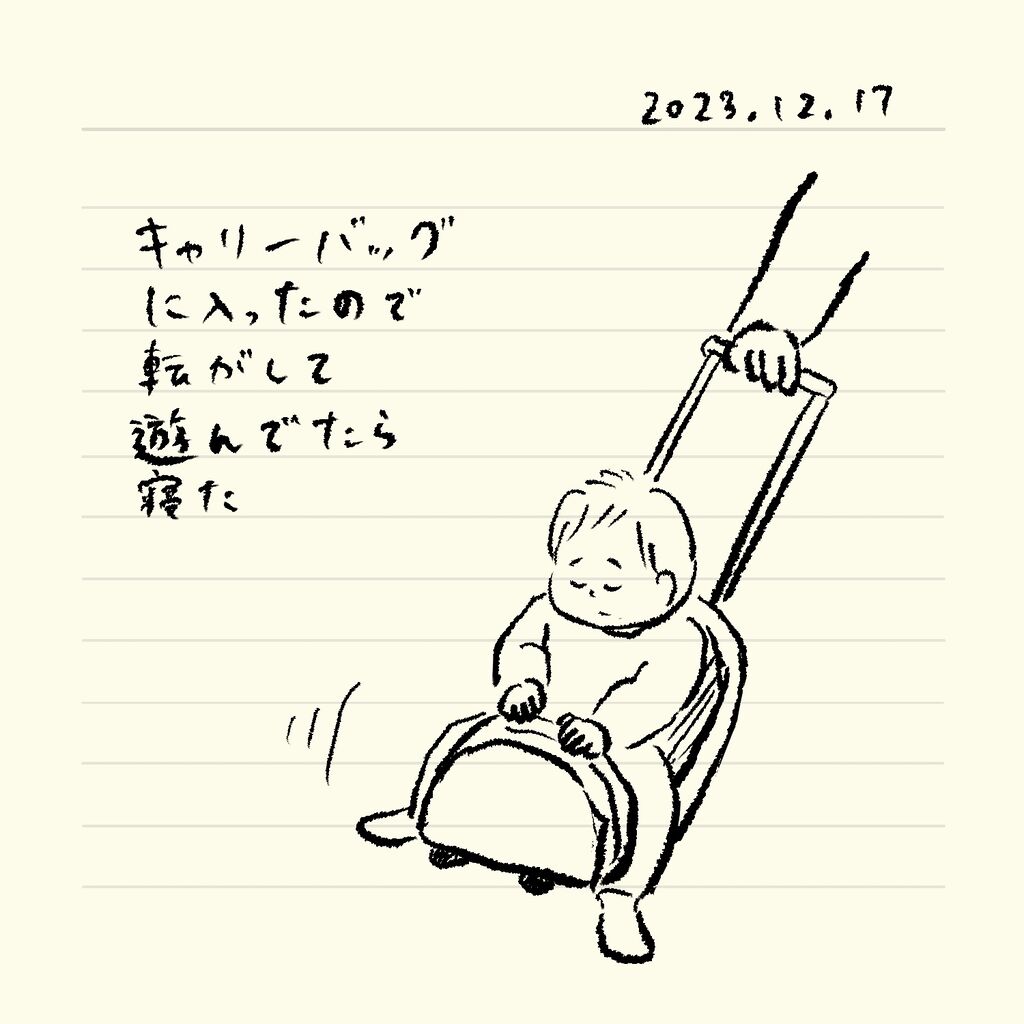 2023.12.17
キャリーバッグ
に入ったので
転がして
遊んでたら
寝た